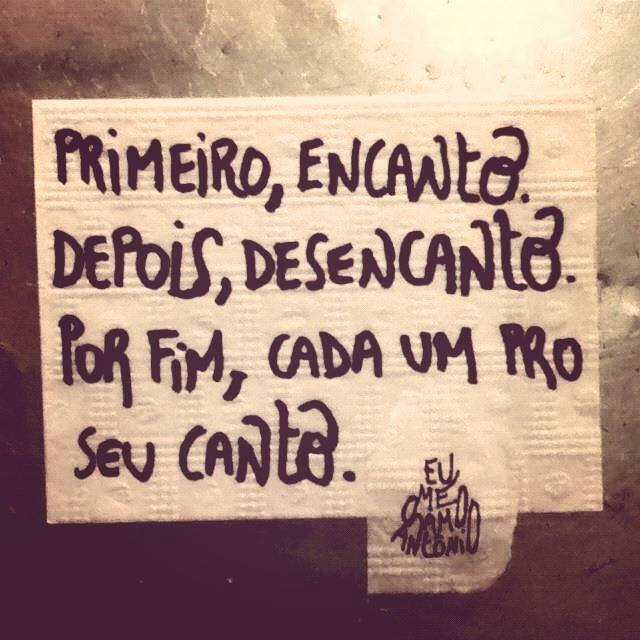 PRIMEIRO, ENCANTO.
DEPOIS, DESENCANTO.
POR FIM, CADA UM PRO
SEU CANTO.
EU
ME
CHAMO
ANTÔNIO